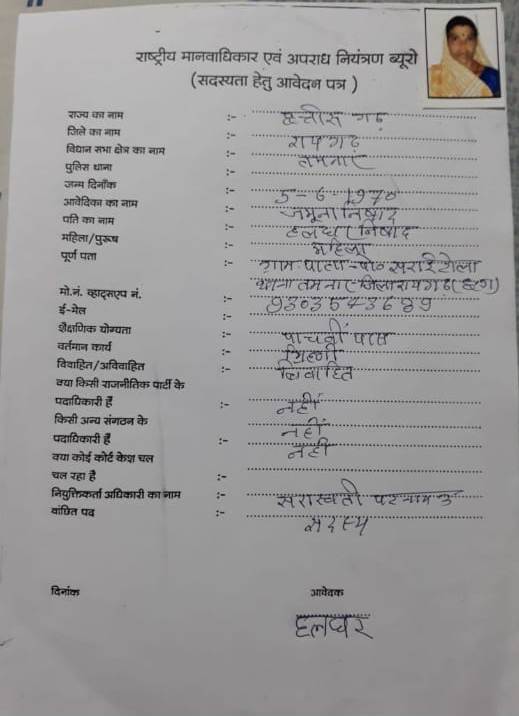 राष्ट्रीय मानवाधिकार एवं अपराध नियंत्रण ब्यूरो
(सदस्यता हेतु आवेदन पत्र )
राज्य का नाम :- छत्तीसगढ़
जिले का नाम :- रायगढ़
विधान सभा क्षेत्र का नाम :-
पुलिस थाना :- तमनार
जन्म दिनाँक :- 5-6-1970
आवेदिका का नाम :- जमूना निषाद
पति का नाम :- हलधर निषाद
महिला/पुरूष :- महिला
पूर्ण पता :- ग्राम- पो० सराईटोला
थाना तमनार जिला रायगढ़ (छ०ग)
मो.नं. व्हाट्सएप नं. :-
ई-मेल :-
शैक्षणिक योग्यता :- पाचवीं पास
वर्तमान कार्य :- गृहिणी
विवाहित/अविवाहित :- विवाहित
क्या किसी राजनीतिक पार्टी के
पदाधिकारी हैं :- नहीं
किसी अन्य संगठन के
पदाधिकारी हैं :- नहीं
क्या कोई कोर्ट केश चल नहीं
चल रहा है :-
नियुक्तिकर्ता अधिकारी का नाम :- सरास्वती
वांछित पद :- सदस्य
दिनांक आवेदक
हलधर